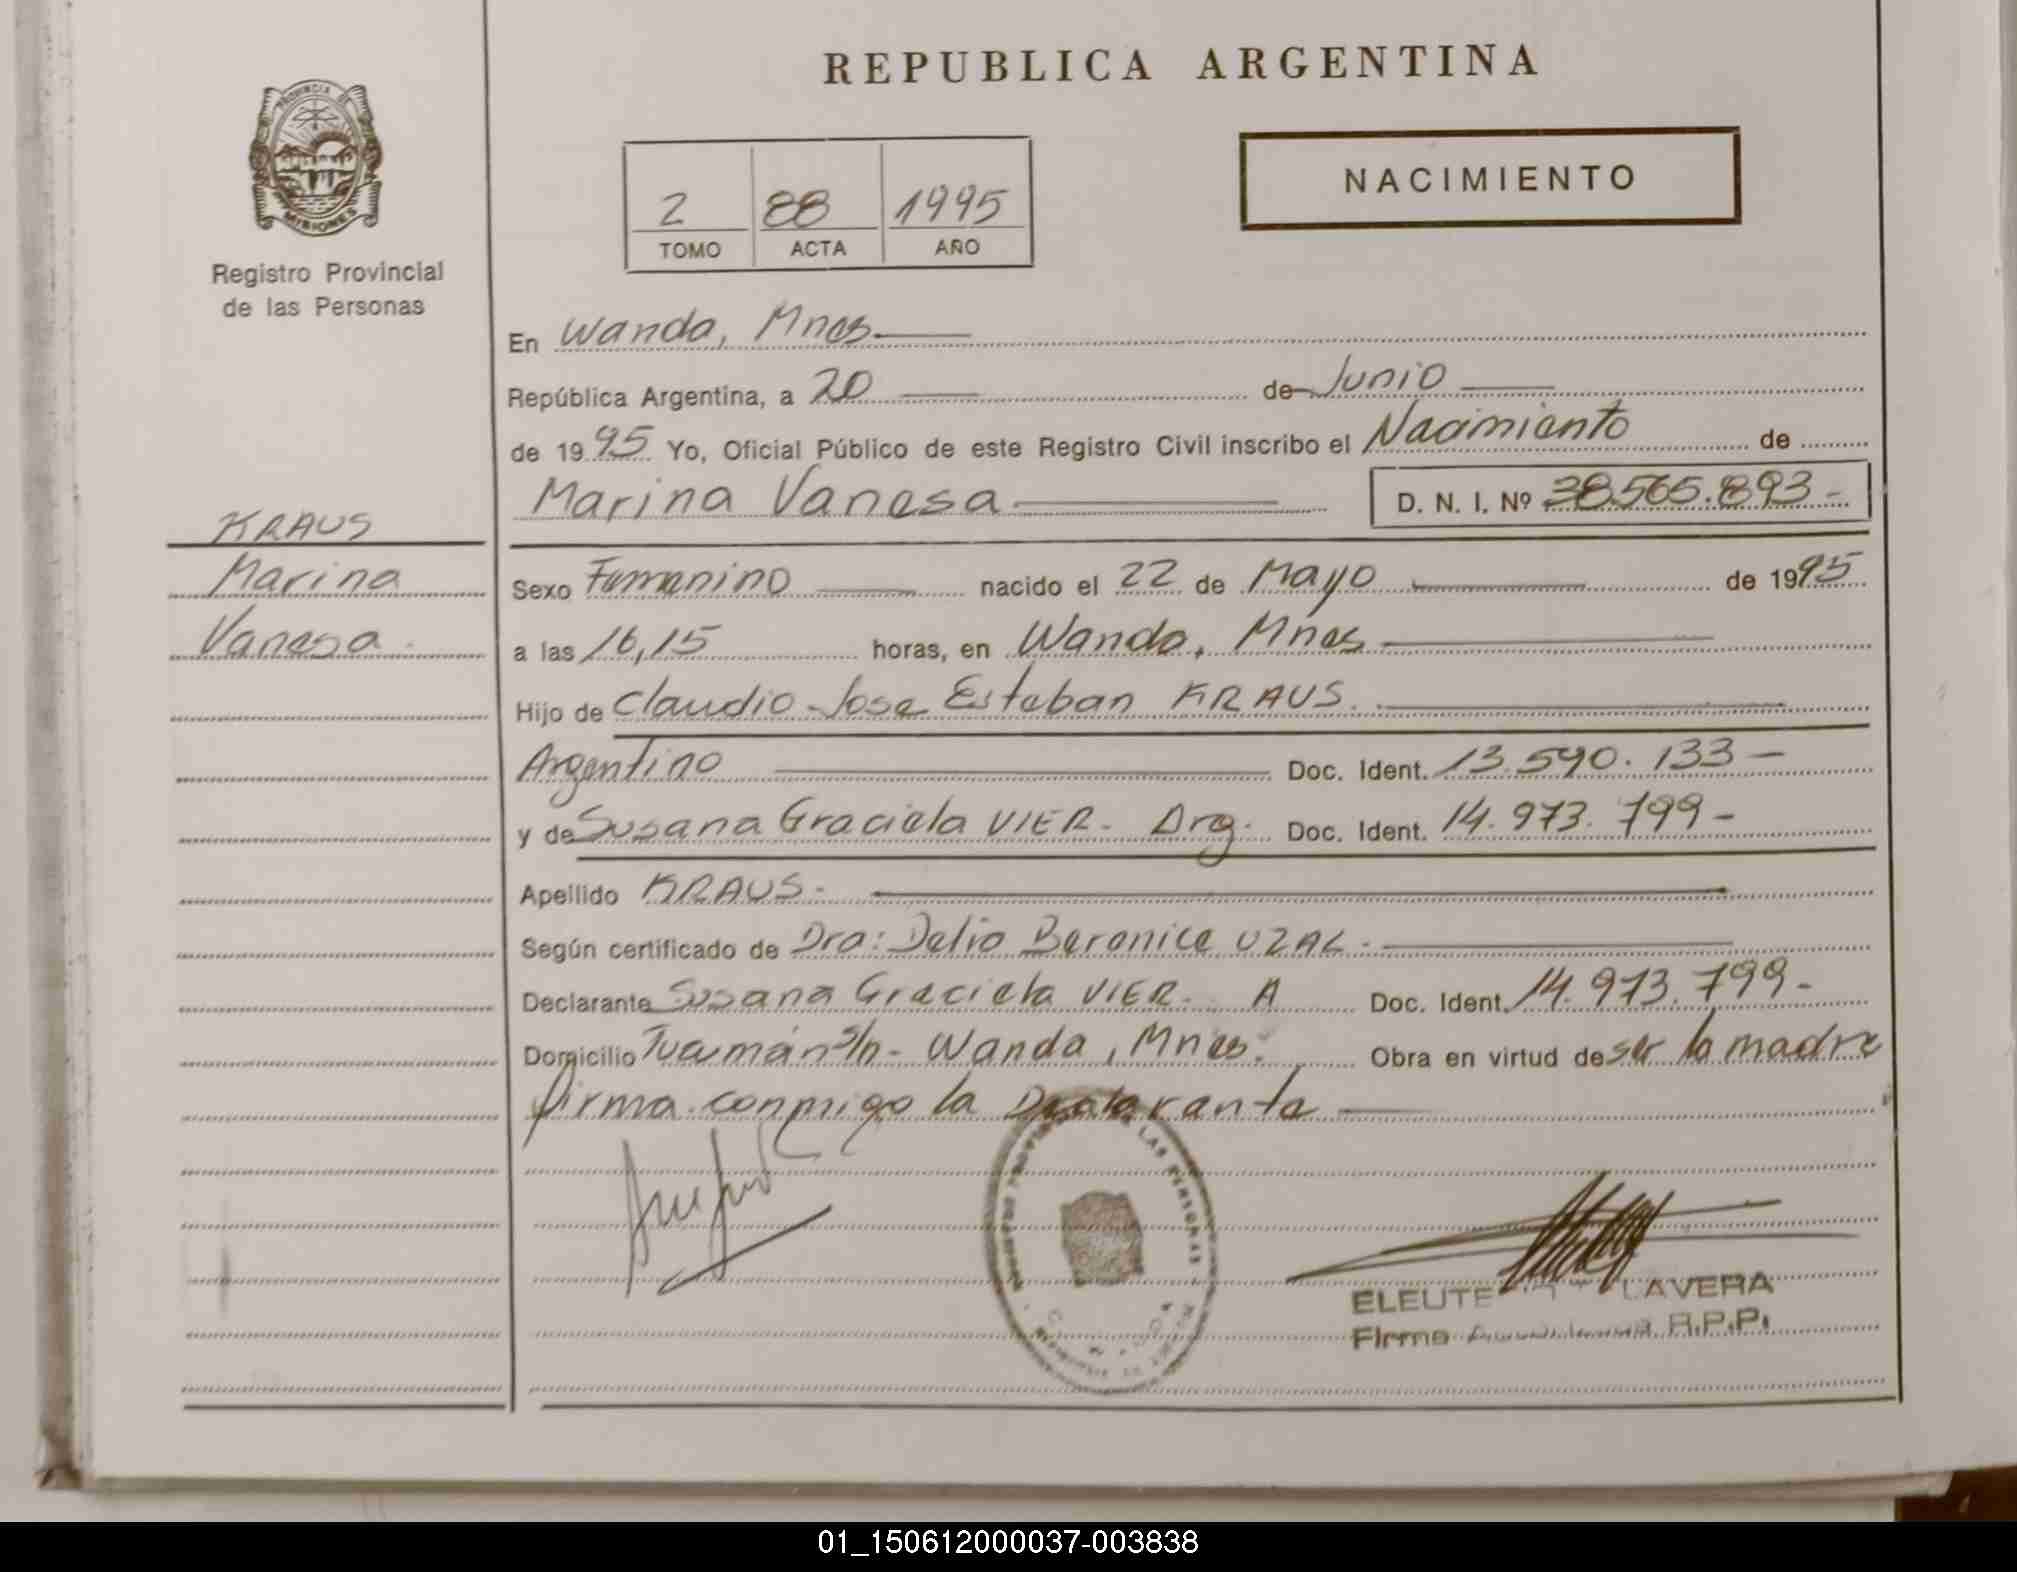 REPUBLICA ARGENTINA
PROVINCIA DE
MISIONES
Registro Provincial
de las Personas
NACIMIENTO
2 88 1995
TOMO ACTA AÑO
En Wanda, Mnes
República Argentina, a 20 de Junio
de 1995 Yo, Oficial Público de este Registro Civil inscribo el Nacimiento de
Marina Vanesa D. N. I. Nº 38.565.893-
KRAUS
Marina
Vanesa.
Sexo Femenino nacido el 22 de Mayo de 1995
a las 16,15 horas, en Wanda, Mnes
Hijo de Claudio Jose Esteban KRAUS.
Argentino Doc. Ident. 13.590.133-
y de Susana Graciela VIER- Arg. Doc. Ident. 14.973.799-
Apellido KRAUS-
Según certificado de Dra: Delia Beronice UZAL-
Declarante Susana Graciela VIER- A Doc. Ident. 14.973.799-
Domicilio Tucumán s/n- Wanda, Mnes. Obra en virtud de ser la madre
firma conmigo la Declarante
LAS PERSONAS
ELEUTE LAVERA
Firma R.P.P.
01_150612000037-003838